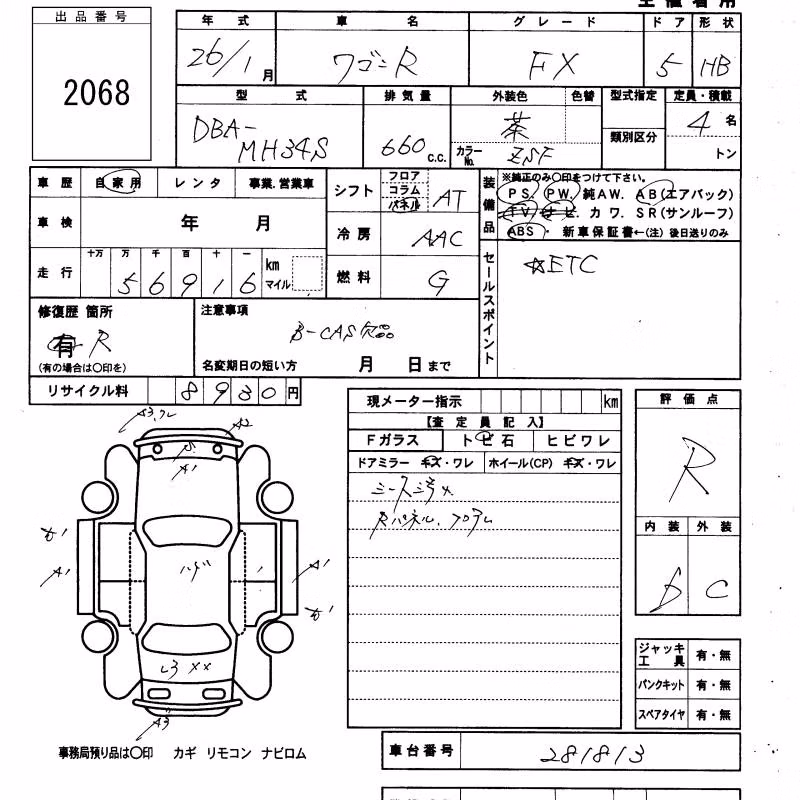 出品番号
2068
年式 車名 グレード ドア 形状
26/1月 ワゴンR FX 5 HB
型式 排気量 外装色 色替 型式指定 定員・積載
DBA-MH34S 660 c.c. 茶 類別区分 4名
カラーNo. ZSF トン
車歴 自家用 レンタ 事業.営業車
シフト フロア コラム パネル AT
装備品 ※純正のみ○印をつけて下さい。
PS. PW. 純AW. AB(エアバック)
TV. ナビ. カワ. SR(サンルーフ)
ABS・ 新車保証書←(注) 後日送りのみ
車検 年 月
冷房 AAC
走行 十万 万 千 百 十 一 km マイル
56916
燃料 G
セールスポイント
☆ETC
修復歴 箇所
有 R
(有の場合は○印を)
注意事項
B-CAS欠品
名変期日の短い方 月 日まで
リサイクル料 8930円
現メーター指示 km
【査定員記入】
Fガラス トビ石 ヒビワレ
ドアミラー キズ・ワレ ホイール(CP) キズ・ワレ
評価点
R
内装 外装
C
A3.ワレ
A2
A1
A1
A1
A3
ジャッキ工具 有・無
パンクキット 有・無
スペアタイヤ 有・無
事務局預り品は○印 カギ リモコン ナビロム
車台番号 281813